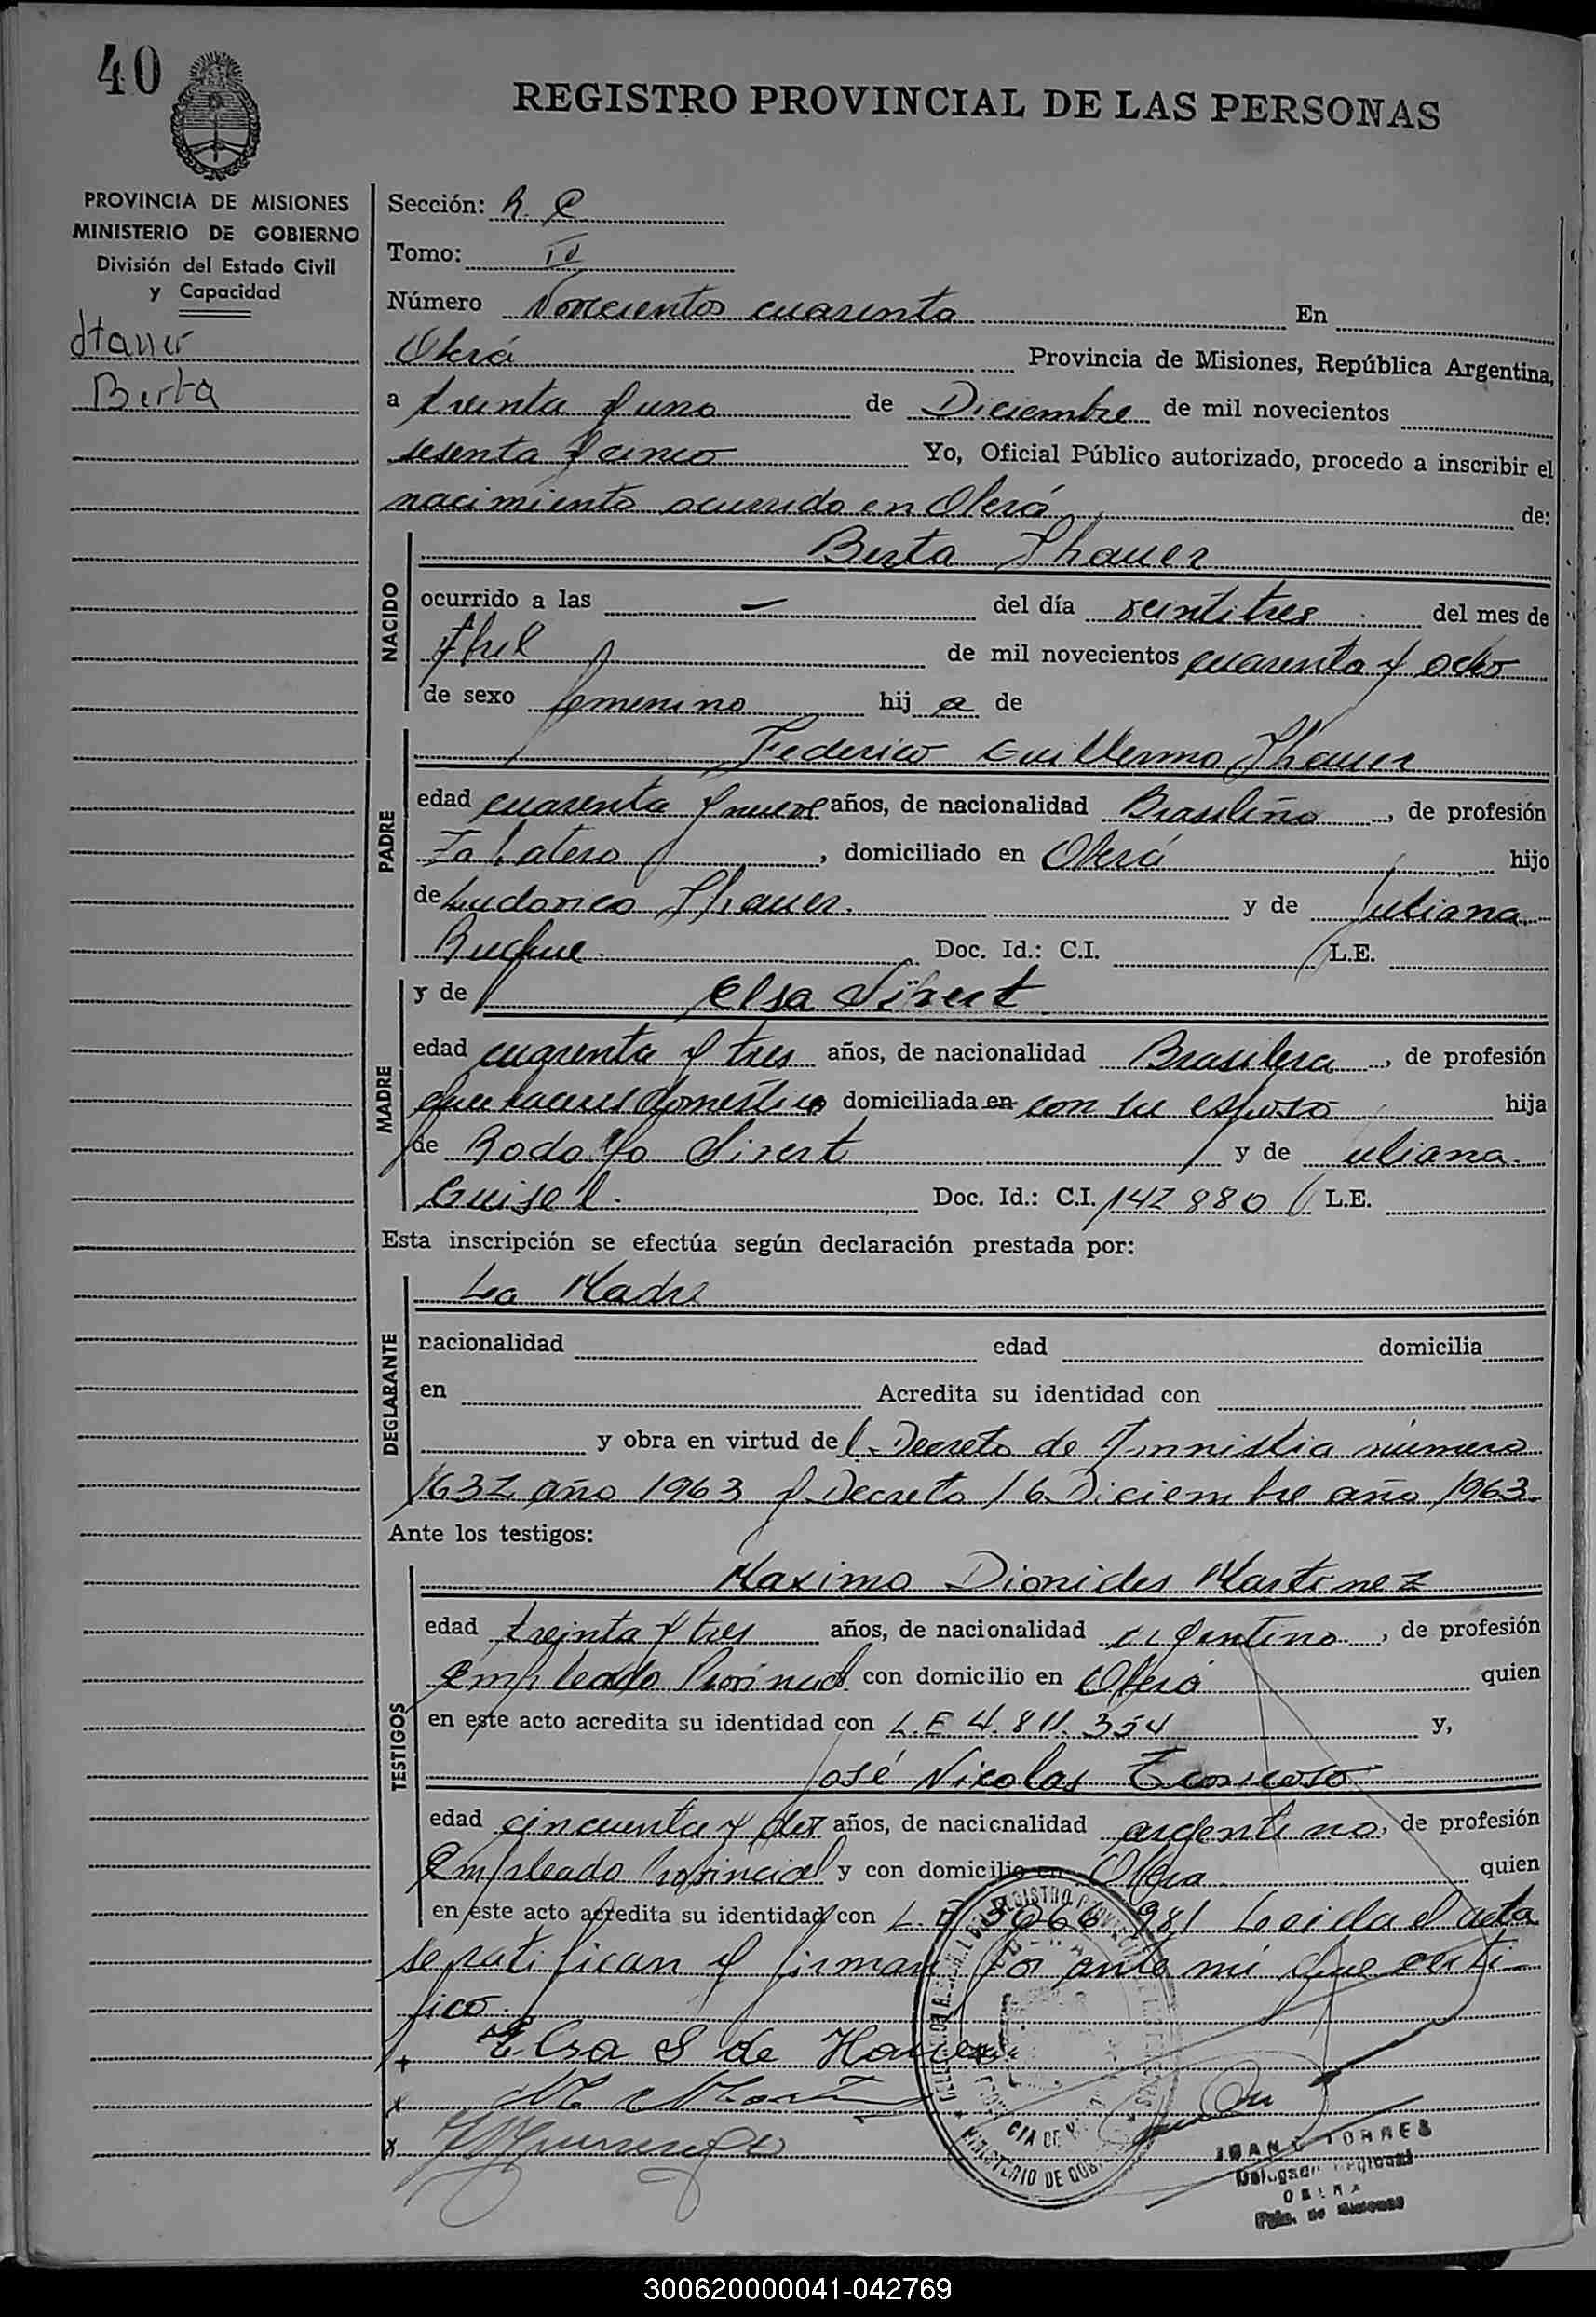 40
REGISTRO PROVINCIAL DE LAS PERSONAS
PROVINCIA DE MISIONES
MINISTERIO DE GOBIERNO
División del Estado Civil
y Capacidad
Hauer
Berta
Sección: R. C
Tomo: IV
Número Novecientos cuarenta En
Oberá Provincia de Misiones, República Argentina,
a treinta y uno de Diciembre de mil novecientos
sesenta y cinco Yo, Oficial Público autorizado, procedo a inscribir el
nacimiento ocurrido en Oberá de:
NACIDO
Berta Thauer
ocurrido a las — del día veintitres del mes de
Abril de mil novecientos cuarenta y ocho
de sexo femenino hij a de
PADRE
Federico Guillermo Thauer
edad cuarenta y nueve años, de nacionalidad Brasileño, de profesión
Zapatero, domiciliado en Oberá hijo
de Ludovico Thauer y de Juliana
Doc. Id.: C.I. L.E.
MADRE
y de Elsa Sivert
edad cuarenta y tres años, de nacionalidad Brasilera, de profesión
quehaceres domestico domiciliada en con su esposo hija
de Rodolfo Sivert y de uliana
Guisel. Doc. Id.: C.I. 142880 L.E.
Esta inscripción se efectúa según declaración prestada por:
DECLARANTE
La Madre
nacionalidad edad domicilia
en Acredita su identidad con
y obra en virtud de l Decreto de Amnistia número
1632 año 1963 y Decreto 16 Diciembre año 1963.
Ante los testigos:
TESTIGOS
Maximo Dionides Martinez
edad treinta y tres años, de nacionalidad argentino, de profesión
Empleado Provincial con domicilio en Oberá quien
en este acto acredita su identidad con L.E 4.811.354 y,
José Nicolas
edad cincuenta y años, de nacionalidad argentino, de profesión
Empleado Provincial y con domicilio en Obera quien
en este acto acredita su identidad con L. 981 Leida el acta
se ratifican y firman por ante mi que certi-
fico.
Elsa S de Hauer
MINISTERIO DE
TORRES
Delegado Regional
OBERA
Pcia. de Misiones
300620000041-042769